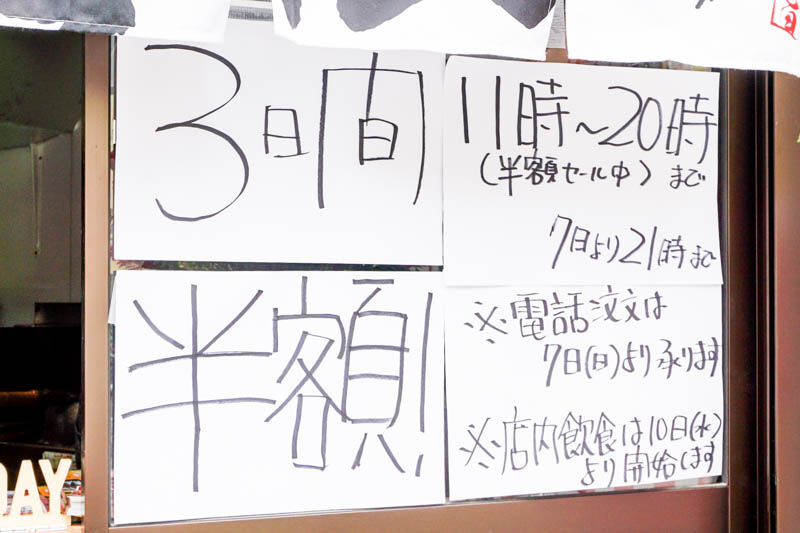 3日間
半額!
11時~20時
(半額セール中)まで
7日より21時まで
※電話注文は
7日(日)より承ります
※店内飲食は10日(水)
より開始します
DAY